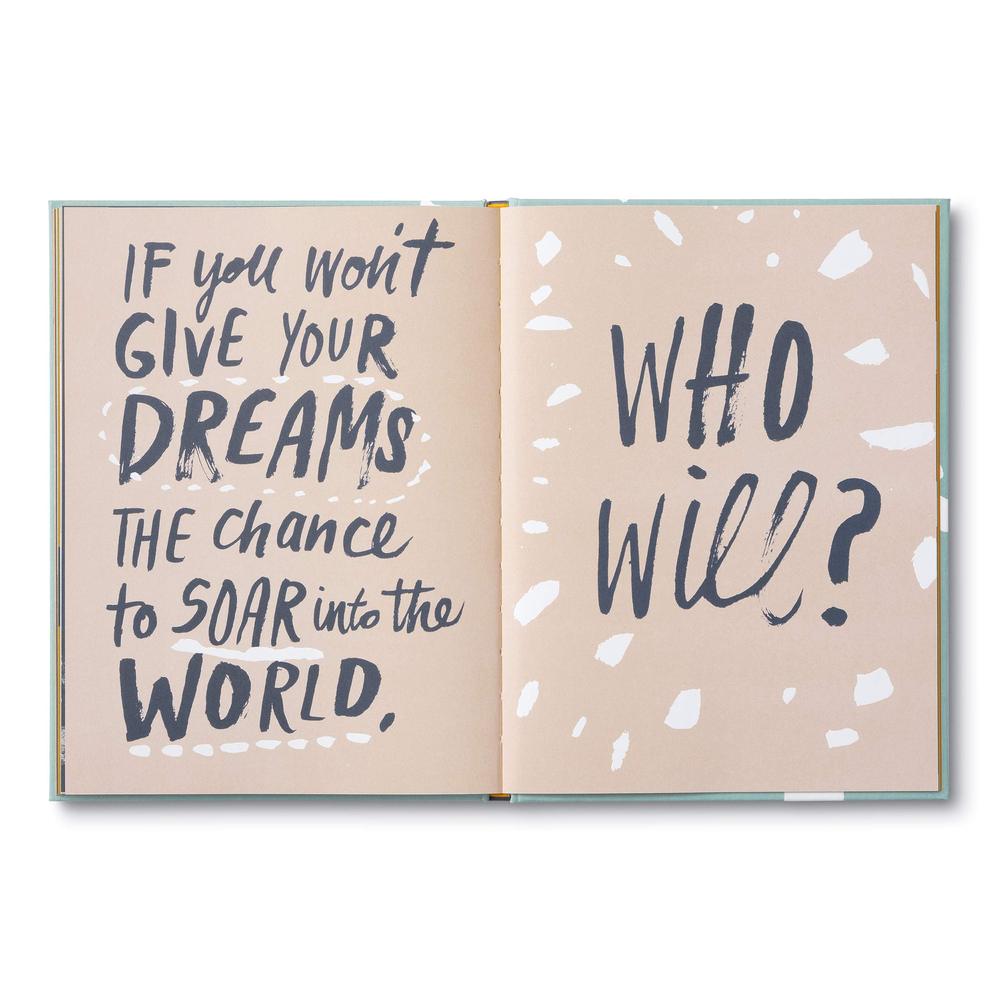 IF you won't
GIVE YOUR
DREAMS
THE chance
to SOAR into the
WORLD,
WHO
will?